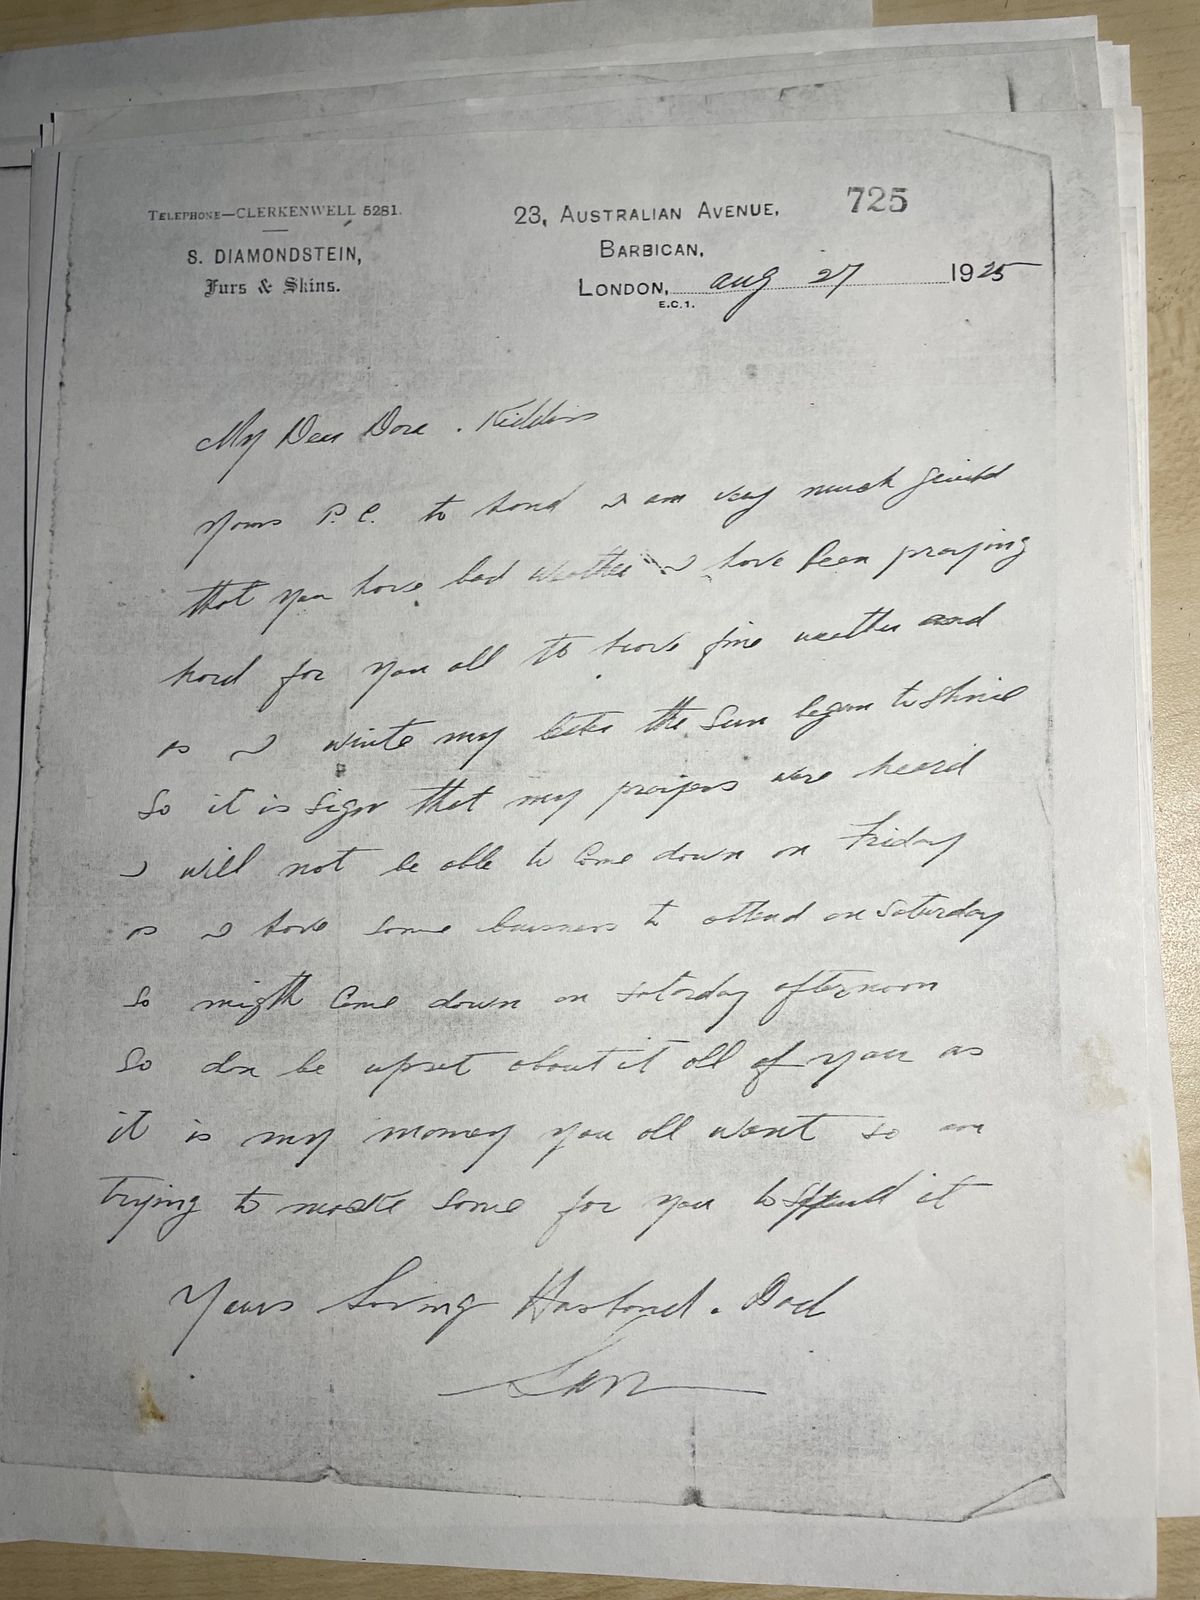 TELEPHONE—CLERKENWELL 5281.
S. DIAMONDSTEIN,
Furs & Skins.
23, AUSTRALIAN AVENUE,
BARBICAN,
LONDON, aug 27 1925
E.C.1.
725
My Dear Dora . Kiddies
Yours P.C. to hand I am very much
that you have bad weather I have been praying
hard for you all to have fine weather and
as I write my letter the Sun began to Shine
So it is Sign that my prayers were heard
I will not be able to Come down on Friday
as I have some business to attend on Saturday
So migth Come down on Saturday afternoon
So don be upset about it all of you as
it is my money you all want so am
trying to make some for you to Spend it
Yours Loving Husband . Dad